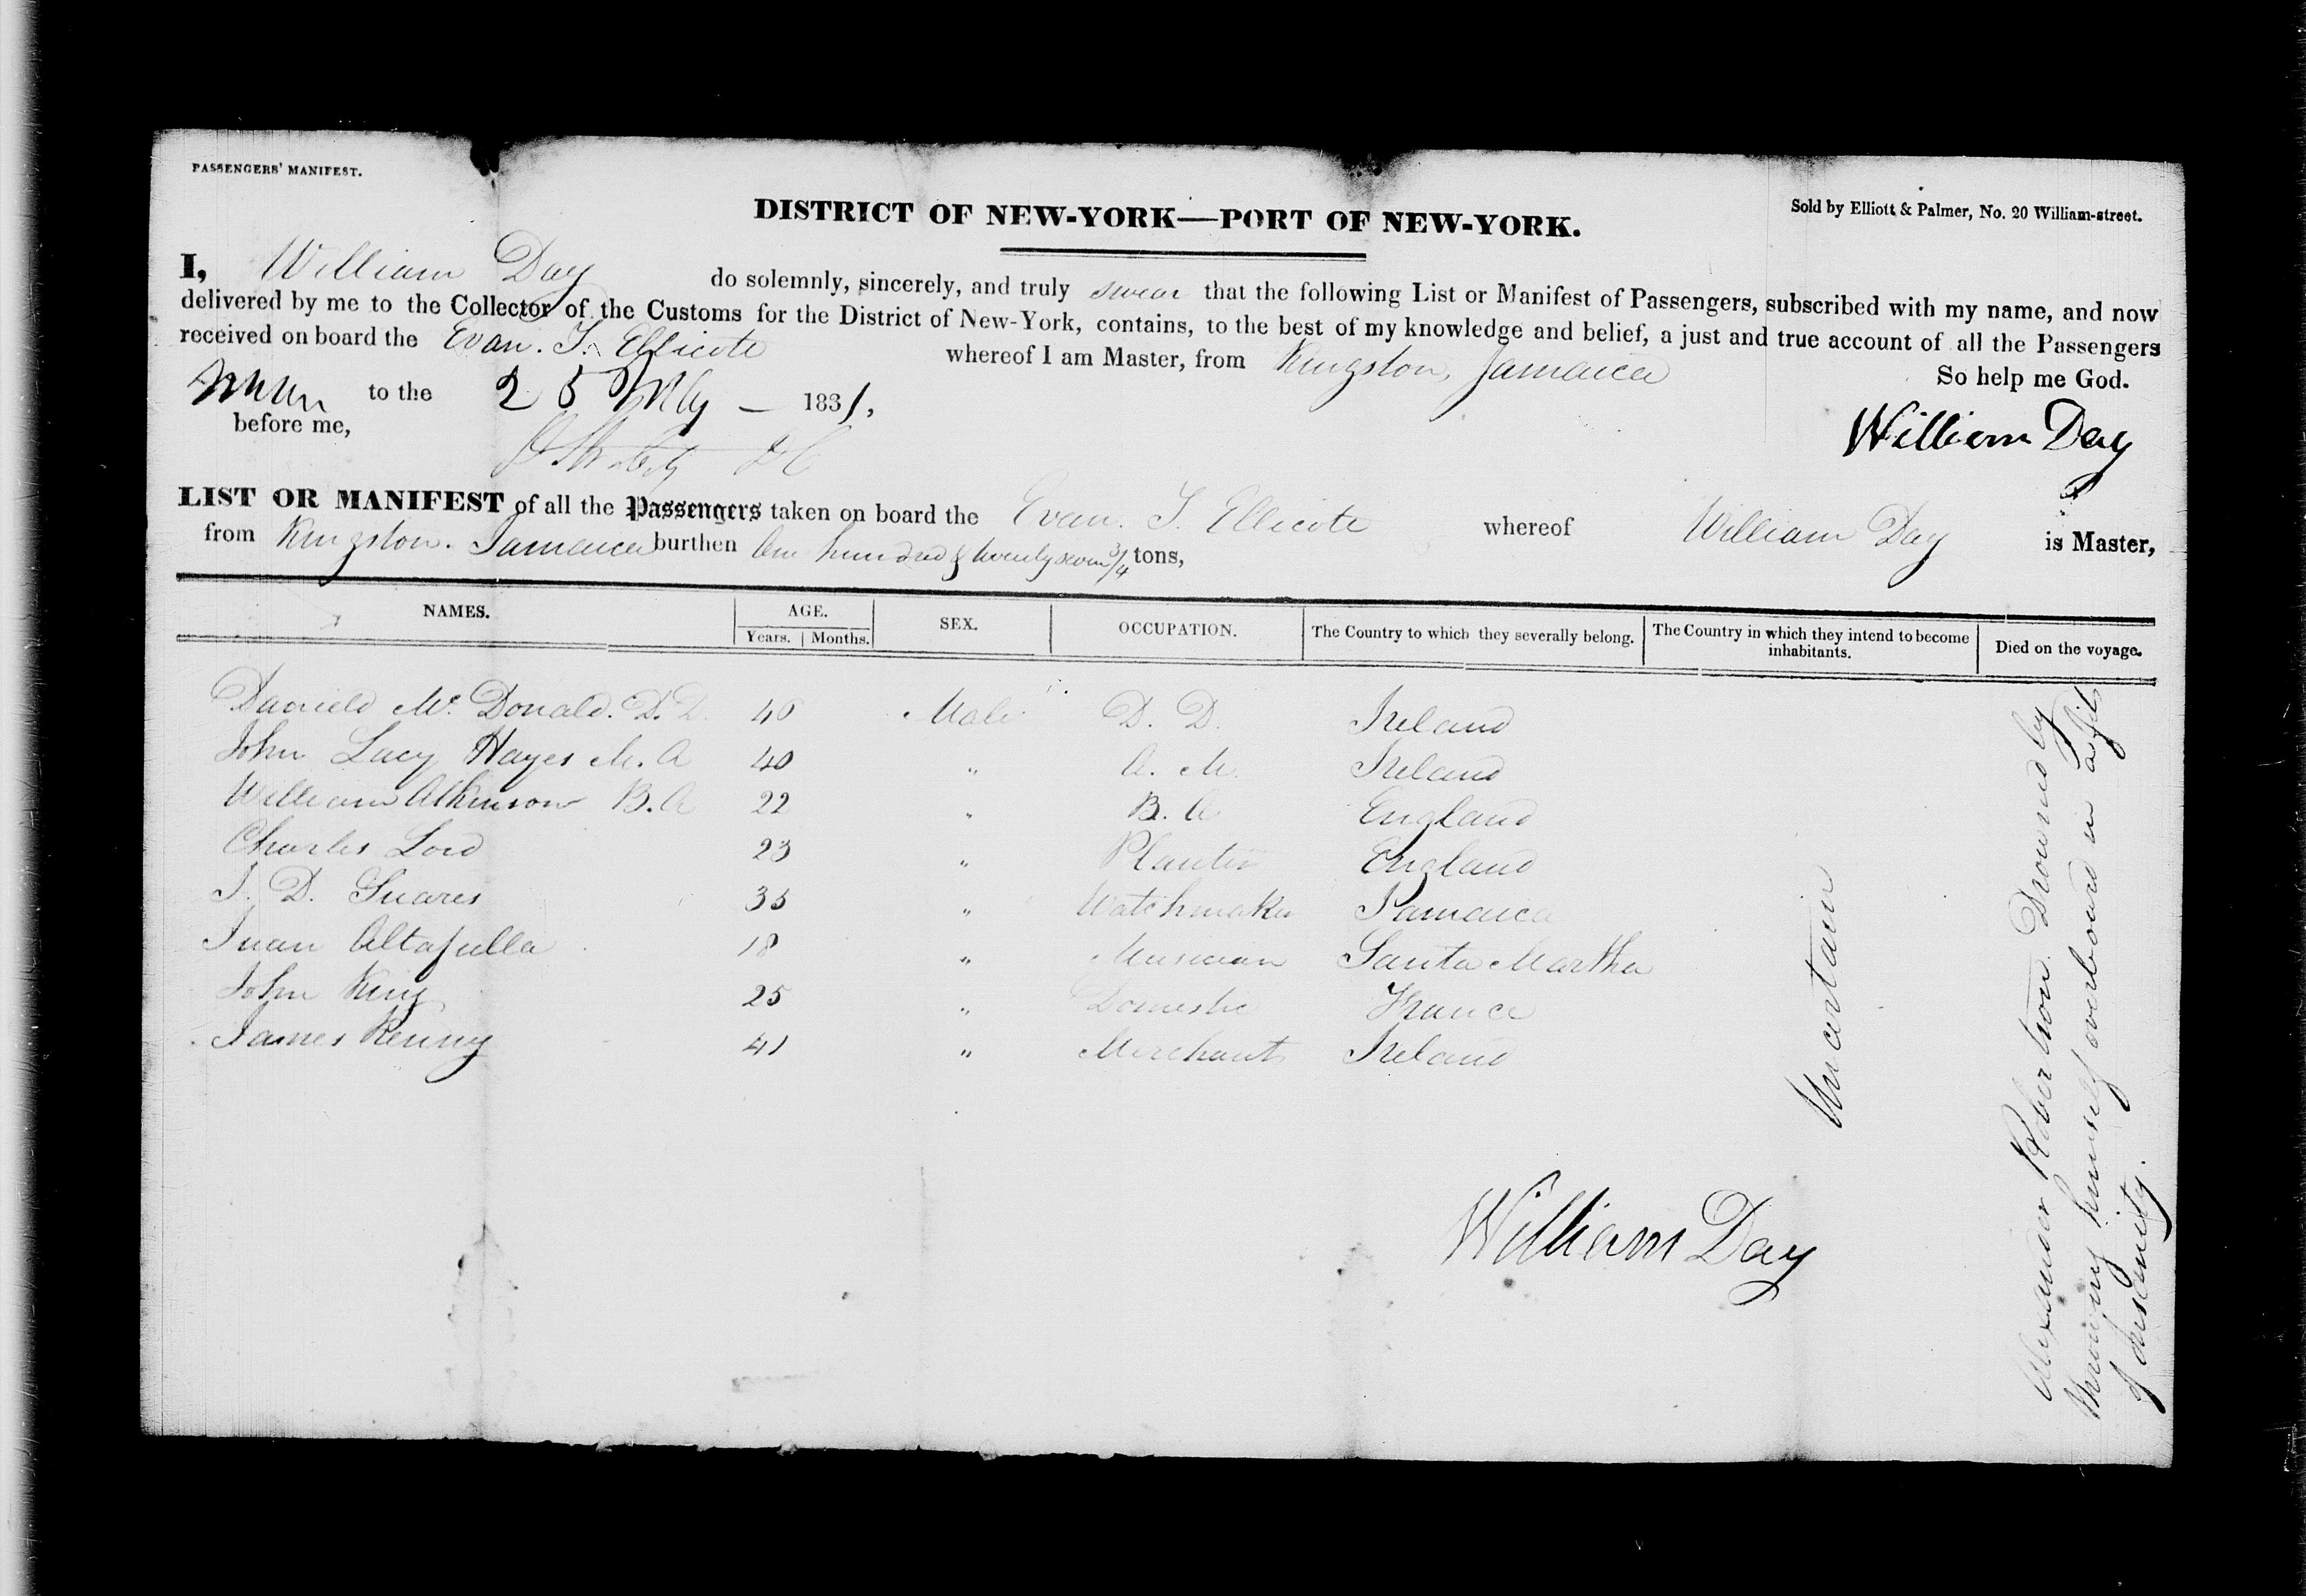 PASSENGERS' MANIFEST.
DISTRICT OF NEW-YORK—PORT OF NEW-YORK.
Sold by Elliott & Palmer, No. 20 William-street.
I, William Day do solemnly, sincerely, and truly swear that the following List or Manifest of Passengers, subscribed with my name, and now
delivered by me to the Collector of the Customs for the District of New-York, contains, to the best of my knowledge and belief, a just and true account of all the Passengers
received on board the Evan. T. Ellicote whereof I am Master, from Kingston, Jamaica
So help me God.
to the 25 May — 1831,
before me,
William Day
LIST OR MANIFEST of all the Passengers taken on board the Evan. T. Ellicote whereof William Day is Master,
from Kingston. Jamaica burthen One hundred & twenty seven 3/4 tons,
NAMES. AGE. SEX. OCCUPATION. The Country to which they severally belong. The Country in which they intend to become inhabitants. Died on the voyage.
Years. Months.
Daniell Mc. Donald. D.D. 40 Male D. D. Ireland
John Lacy Hayes M. A 40 " A. M. Ireland
William Atkinson B. A 22 " B. A England
Charles Lord 23 " Planter England
J. D. Suares 35 " Watchmaker Jamaica
Juan Altafulla 18 " Musician Santa Martha
John King 25 " Domestic France
James Kenny 41 " Merchant Ireland
Uncertain
Alexander Robertson. Drowned by
throwing himself overboard in a fit
of insanity.
William Day